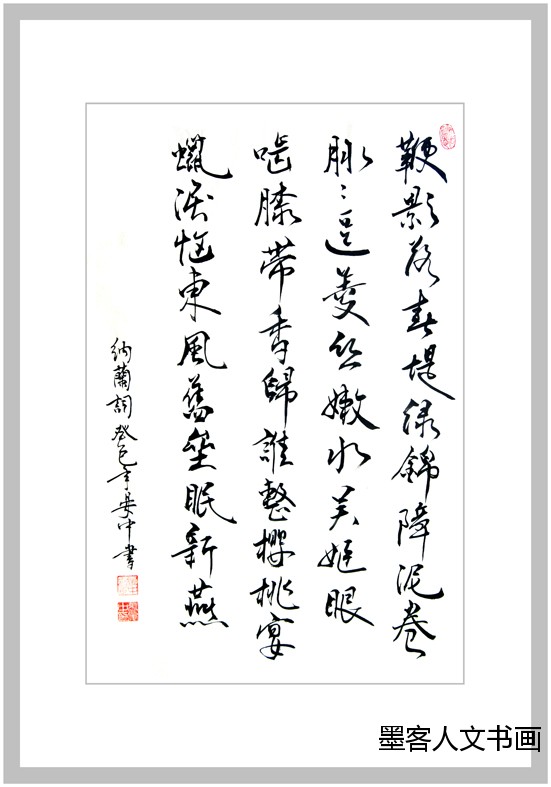 鞭影落春堤绿錦障泥卷
脉〻逗菱丝嫩水吴姬眼
啮膝带香歸誰整櫻桃宴
蠟淚恼東風舊垒眠新燕
納蘭詞癸巳年中書
墨客人文书画